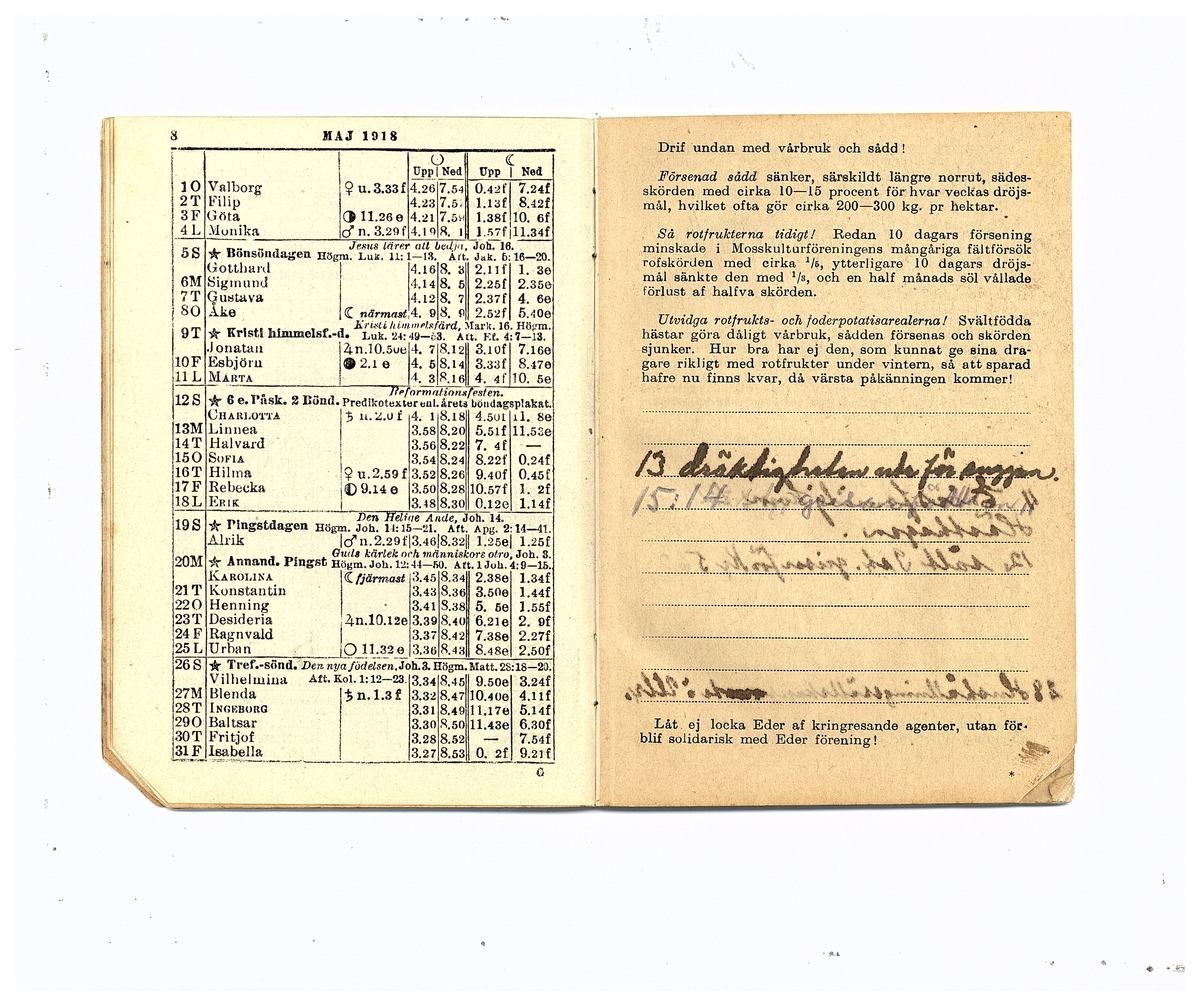 8 MAJ 1918
☉ ☾
Upp Ned Upp Ned
1 O Valborg ♀ u. 3.33 f 4.26 7.54 0.42f 7.24f
2 T Filip 4.23 7.5 1.13f 8.42f
3 F Göta ◑ 11.26 e 4.21 7.5 1.38f 10. 6f
4 L Monika ♂ n. 3.29 f 4.19 8. 1 1.57f 11.34f
Jesus lärer att bedja, Joh. 16.
5 S ★ Bönsöndagen Högm. Luk. 11: 1—13. Aft. Jak. 5: 16—20.
Gotthard 4.16 8. 3 2.11f 1. 3e
6 M Sigmund 4.14 8. 5 2.25f 2.35e
7 T Gustava 4.12 8. 7 2.37f 4. 6e
8 O Åke ☾ närmast 4. 9 8. 9 2.52f 5.40e
Kristi himmelsfärd, Mark. 16. Högm.
9 T ★ Kristi himmelsf.-d. Luk. 24: 49—53. Aft. Ef. 4: 7—13.
Jonatan ♃ n. 10.50e 4. 7 8.12 3.10f 7.16e
10 F Esbjörn ● 2.1 e 4. 5 8.14 3.33f 8.47e
11 L MÄRTA 4. 3 8.16 4. 4f 10. 5e
Reformationsfesten.
12 S ★ 6 e. Påsk. 2 Bönd. Predikotexter enl. årets böndagsplakat.
CHARLOTTA ♄ n. 2.0 f 4. 1 8.18 4.50f 11. 8e
13 M Linnea 3.58 8.20 5.51f 11.53e
14 T Halvard 3.56 8.22 7. 4f —
15 O SOFIA 3.54 8.24 8.22f 0.24f
16 T Hilma ♀ u. 2.59 f 3.52 8.26 9.40f 0.45f
17 F Rebecka ◐ 9.14 e 3.50 8.28 10.57f 1. 2f
18 L ERIK 3.48 8.30 0.12e 1.14f
Den Helige Ande, Joh. 14.
19 S ★ Pingstdagen Högm. Joh. 14: 15—21. Aft. Apg. 2: 14—41.
Alrik ♂ n. 2.29 f 3.46 8.32 1.25e 1.25f
Guds kärlek och människors otro, Joh. 3.
20 M ★ Annand. Pingst Högm. Joh. 12: 44—50. Aft. 1 Joh. 4: 9—15.
KAROLINA ☾ fjärmast 3.45 8.34 2.38e 1.34f
21 T Konstantin 3.43 8.36 3.50e 1.44f
22 O Henning 3.41 8.38 5. 5e 1.55f
23 T Desideria ♃ n. 10.12e 3.39 8.40 6.21e 2. 9f
24 F Ragnvald 3.37 8.42 7.38e 2.27f
25 L Urban ○ 11.32 e 3.36 8.43 8.48e 2.50f
26 S ★ Tref.-sönd. Den nya födelsen, Joh. 3. Högm. Matt. 28: 18—20.
Vilhelmina Aft. Kol. 1: 12—23. 3.34 8.45 9.50e 3.24f
27 M Blenda ♄ n. 1.3 f 3.32 8.47 10.40e 4.11f
28 T INGEBORG 3.31 8.49 11.17e 5.14f
29 O Baltsar 3.30 8.50 11.43e 6.30f
30 T Fritjof 3.28 8.52 — 7.54f
31 F Isabella 3.27 8.53 0. 2f 9.21f
G
Drif undan med vårbruk och sådd!
Försenad sådd sänker, särskildt längre norrut, sädes-
skörden med cirka 10—15 procent för hvar veckas dröjs-
mål, hvilket ofta gör cirka 200—300 kg. pr hektar.
Så rotfrukterna tidigt! Redan 10 dagars försening
minskade i Mosskulturföreningens mångåriga fältförsök
rofskörden med cirka 1/6, ytterligare 10 dagars dröjs-
mål sänkte den med 1/3, och en half månads söl vållade
förlust af halfva skörden.
Utvidga rotfrukts- och foderpotatisarealerna! Svältfödda
hästar göra dåligt vårbruk, sådden försenas och skörden
sjunker. Hur bra har ej den, som kunnat ge sina dra-
gare rikligt med rotfrukter under vintern, så att sparad
hafre nu finns kvar, då värsta påkänningen kommer!
13 dräktigheten ute för suggan.
15: 14
Låt ej locka Eder af kringresande agenter, utan för-
blif solidarisk med Eder förening!
*